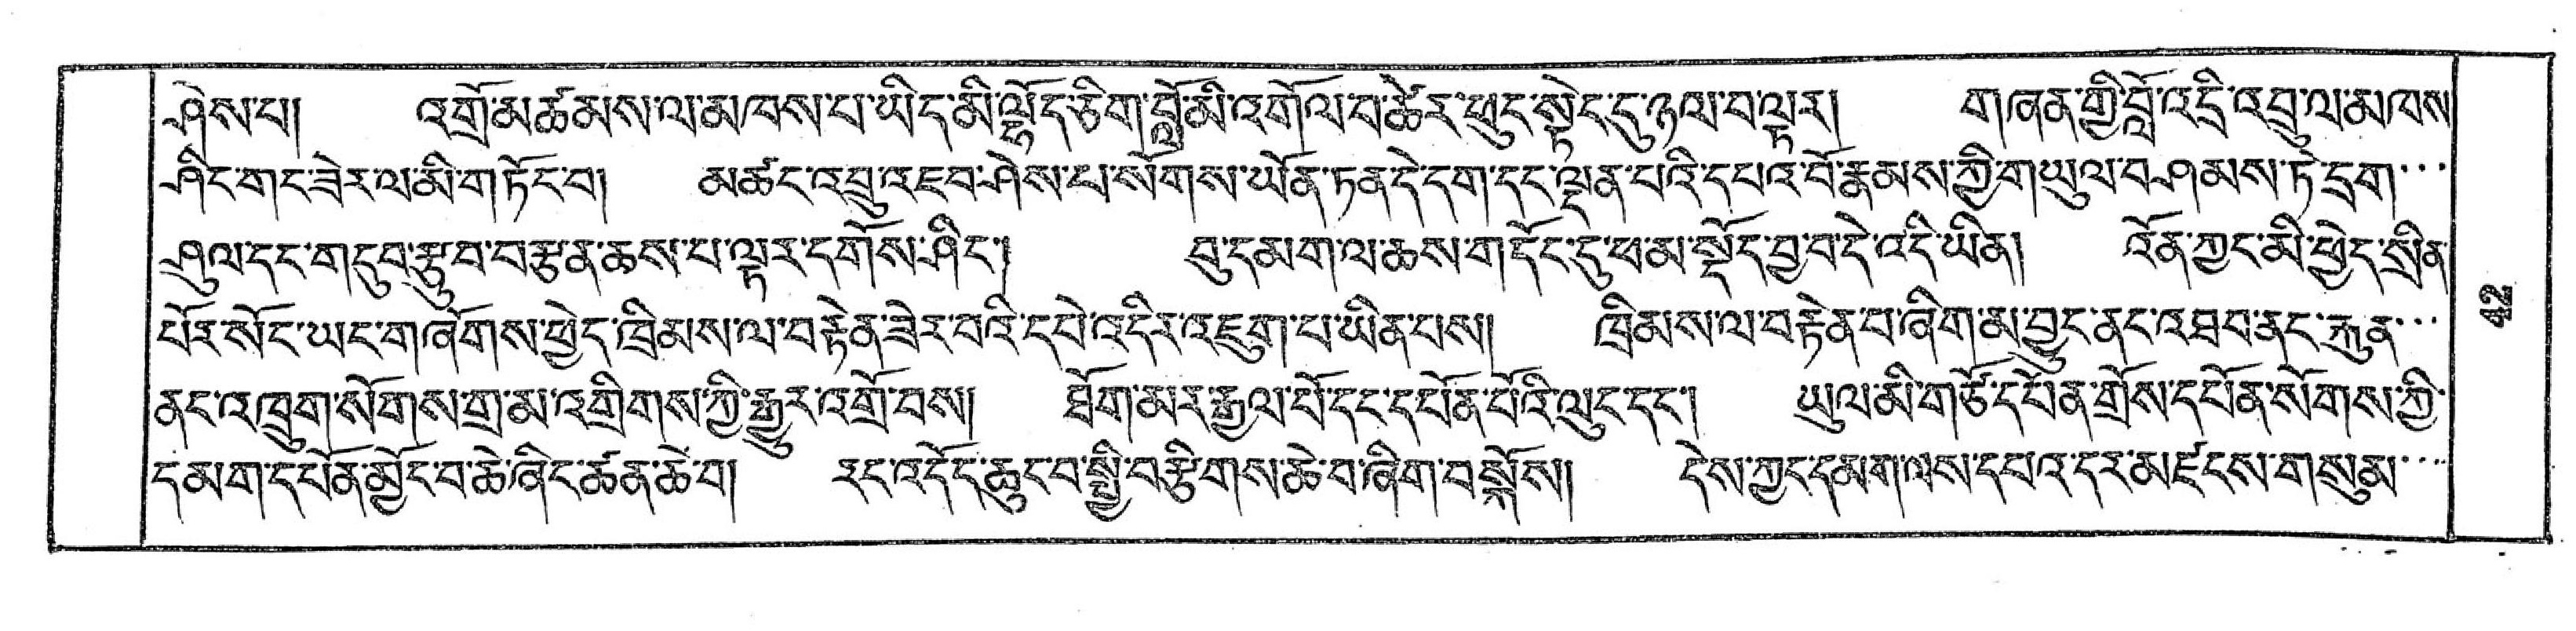 ཤེས་པ། འགྲོ་མཚམས་ལ་མཁས་པ་ཡིད་མི་ལྷོད་ཅིག་བློ་མི་འགོལ་བ་ཚེར་ཕུང་སྟེང་དུ་ཉལ་བ་ལྟར། གཞན་གྱི་བློ་འདྲི་འབྲུ་ལ་མཁས
ཤིང་གང་ཟེར་ལ་མི་གཏོང་བ། མཚང་འབྲུ་འཇབ་ཤེས་པ་སོགས་ཡོན་ཏན་དེ་དག་དང་ལྡན་པའི་དཔའ་བོ་རྣམས་ཀྱི་གཡུལ་བཤམས་ཏེ་དྲག་་་
ཤུལ་དང་གདུབ་རྩུབ་བརྩན་ཆས་པ་ལྟར་དགོས་ཤིང་། བུ་དམག་ལ་ཆས་གདོང་དུ་ཕམ་སྡོད་བྱ་བ་དེ་འདི་ཡིན། འོན་ཀྱང་མི་ཕྱེད་སྲིན
པོར་སོང་ཡང་གཞོགས་ཕྱེད་ཁྲིམས་ལ་བརྟེན་ཟེར་བའི་དཔེ་འདིར་འཇུག་པ་ཡིན་པས། ཁྲིམས་ལ་བརྟེན་པ་ཞིག་མ་བྱུང་ནང་འཐབ་ནང་རྐུན་་་
ནང་འཁྲུག་སོགས་གྲ་མ་འགྲིགས་ཀྱི་རྒྱུར་འགྲོ་བས། ཐོག་མར་རྒྱལ་པོ་དང་དཔོན་པོའི་ལུང་དང་། ཡུལ་མི་གཙོ་དཔོན་གྲོས་དཔོན་སོགས་ཀྱི་
དམག་དཔོན་མྱོང་བ་ཆེ་ཞིང་ཚན་ཆེ་བ། རང་འདོད་ཆུང་བ་སྤྱི་བརྩིགས་ཆེ་བ་ཞིག་བསྐོས། དེས་ཀྱང་དམག་ལས་དཔའ་དར་མཛངས་གསུམ་་་